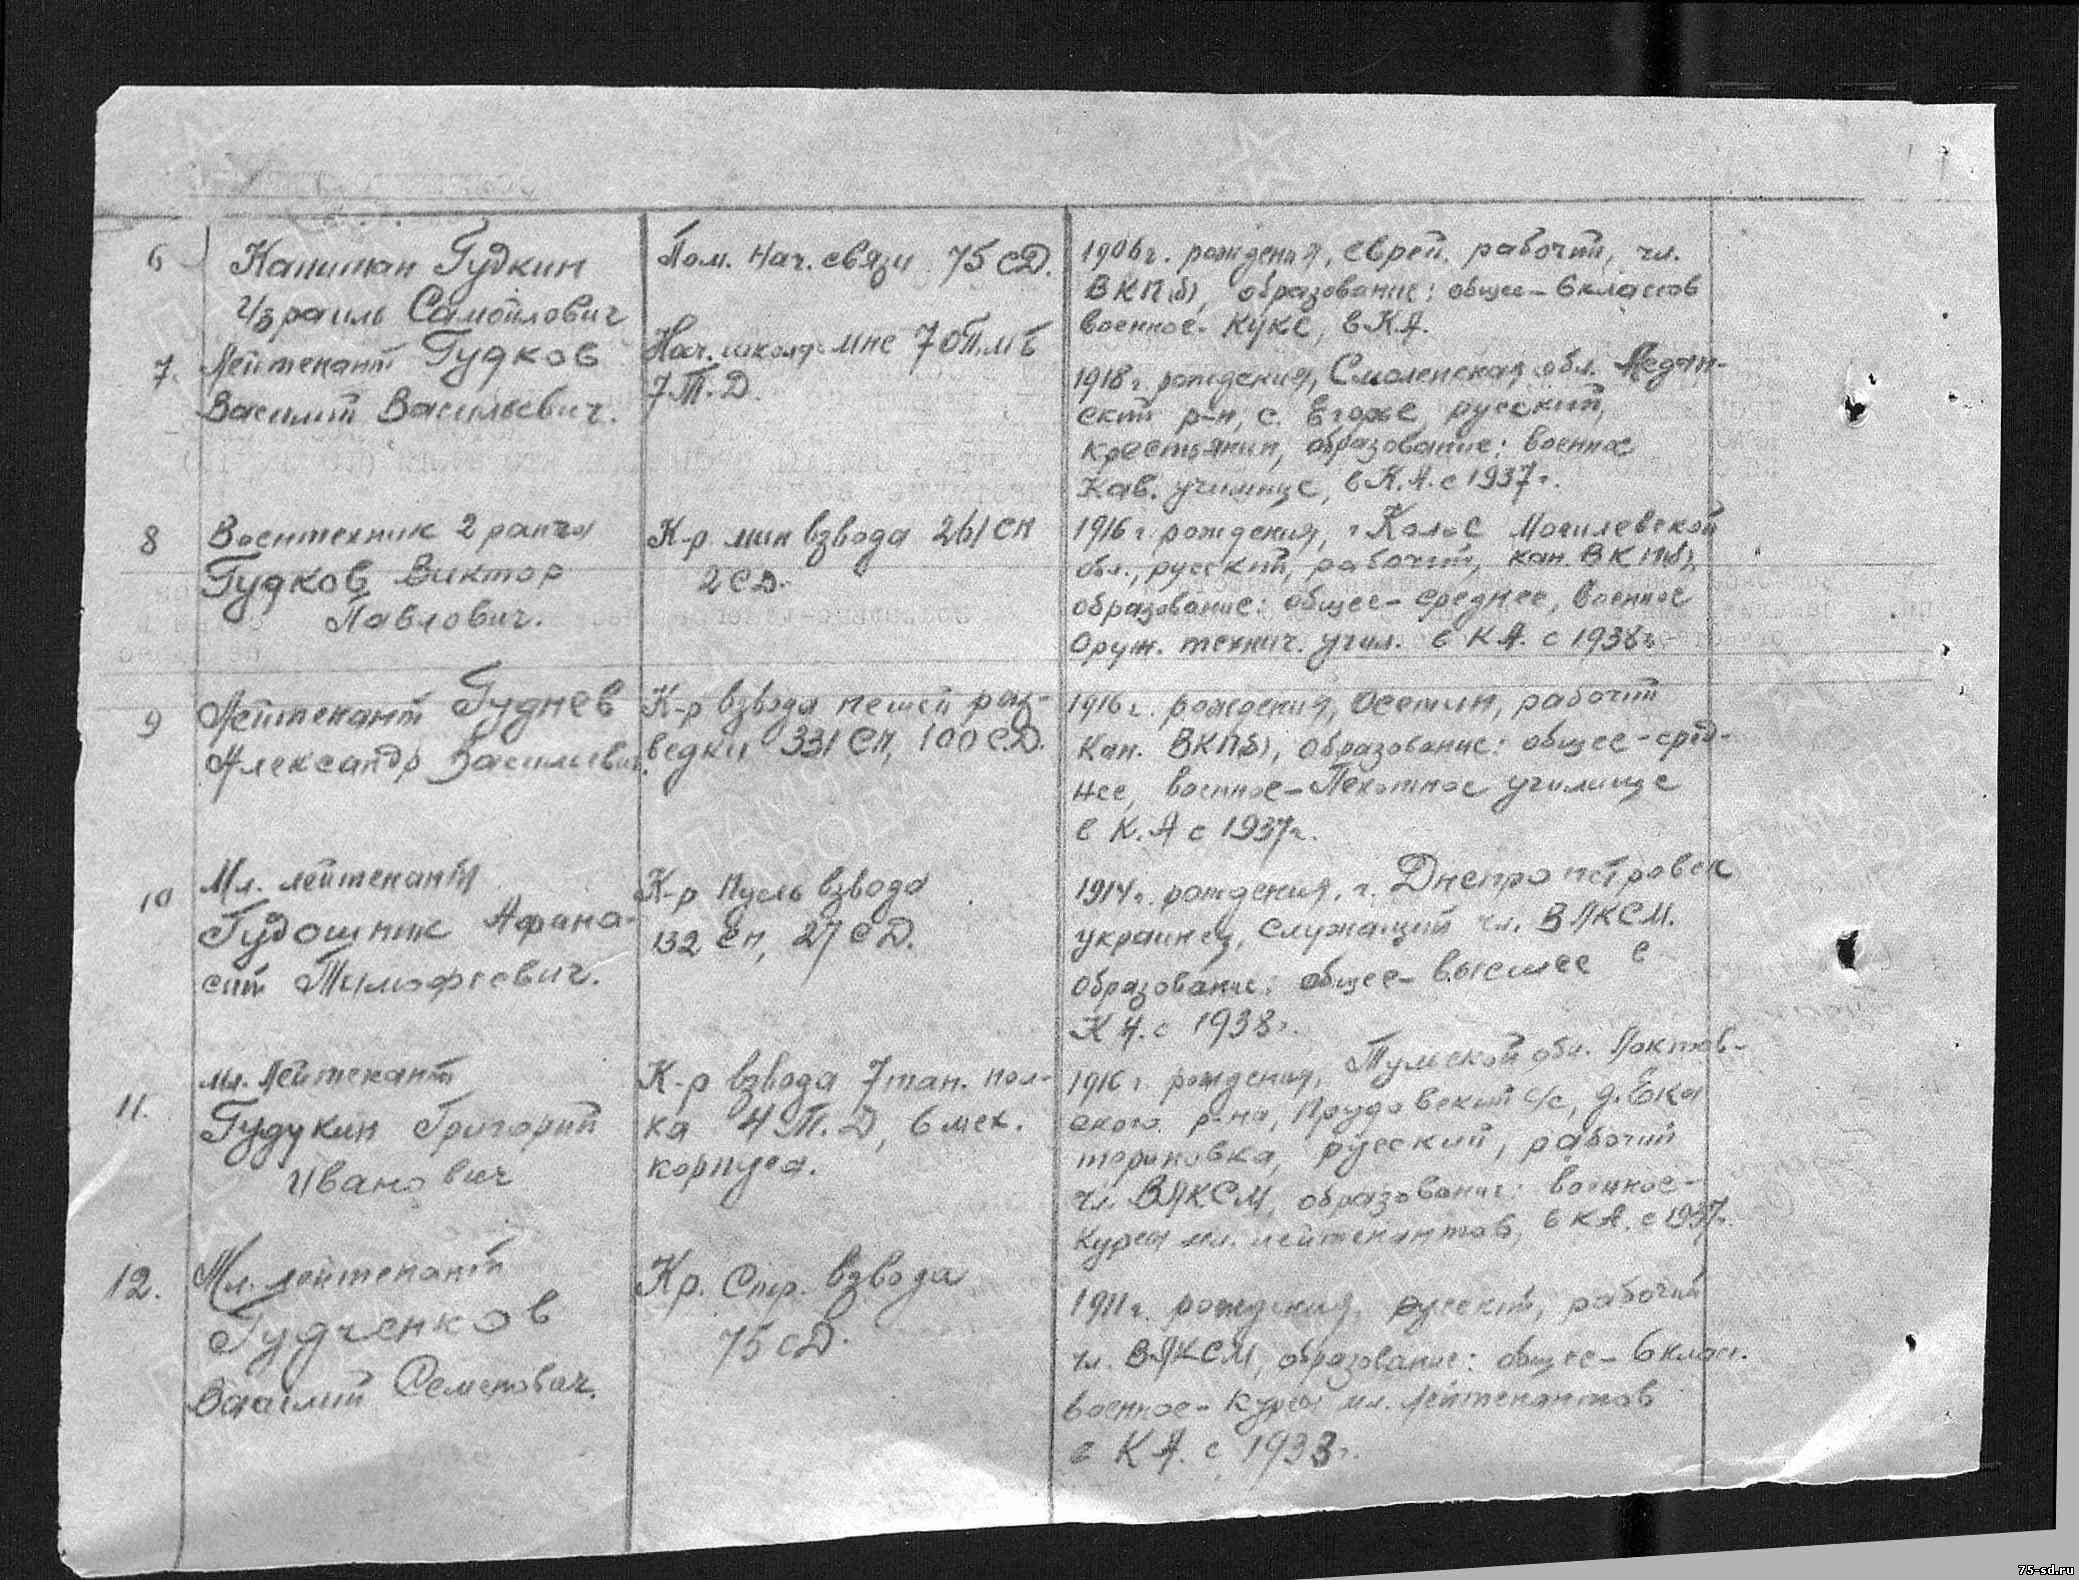 6
Капитан Гудкин
Израиль Самойлович
Пом. Нач. связи 75 СД.
1906 г. рождения, еврей, рабочий, чл.
ВКП(б), образование: общее – 6 классов
военное – КУКС, в К.А.
7.
Лейтенант Гудков
Василий Васильевич.
Нач. школы мнс 7
7 Т.Д.
1918 г. рождения, Смоленская обл.
ский р-н, с. русский,
крестьянин, образование: военное
Кав. училище, в К.А. с 1937 г.
8
Воентехник 2 ранга
Гудков Виктор
Павлович.
К-р мин взвода 261 СП
2 СД.
1916 г. рождения, г. Могилевской
обл., русский, рабочий, кан. ВКП(б),
образование: общее – среднее, военное
Оруж. технич. учил. в КА. с 1938 г.
9
Лейтенант Гуднев
Александр Васильевич.
К-р взвода пешей раз-
ведки 331 СП, 100 СД.
1916 г. рождения, осетин, рабочий
Кан. ВКП(б), образование: общее – сред-
нее, военное – Пехотное училище
в К.А с 1937 г.
10
Мл. лейтенант
Гудошник Афана-
сий Тимофеевич.
К-р Пуль взвода
132 СП, 27 СД.
1914 г. рождения, г. Днепропетровск
украинец, служащий чл. ВЛКСМ.
образование: общее – высшее в
КА. с 1938 г.
11.
Мл. Лейтенант
Гудукин Григорий
Иванович
К-р взвода 7 тан. пол-
ка 4 Т.Д, 6 мех.
корпуса.
1916 г. рождения, обл.
ского р-на, Прудовский с/с, д. Ека
териновка, русский, рабочий
чл. ВЛКСМ, образование: военное –
Курсы мл. лейтенантов, в КА. с 1937 г.
12.
Мл. лейтенант
Гудченков
Василий Семенович.
Кр. Стр. взвода
75 СД.
1911 г. рождения, русский, рабочий
чл. ВЛКСМ, образование: общее – 6 клас.
военное – Курсы мл. Лейтенантов
в КА. с 1933 г.
75-sd.ru